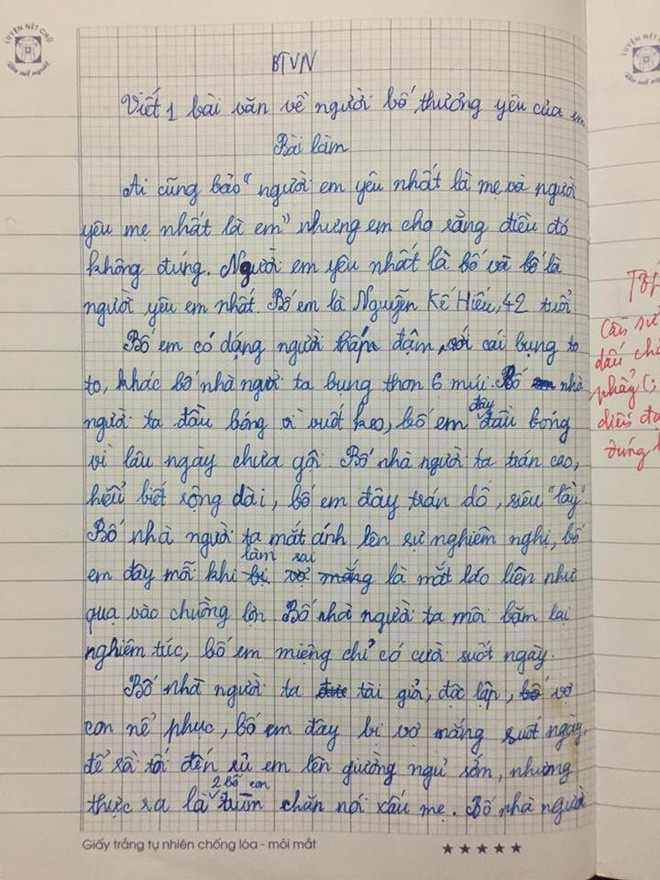 LUYỆN NÉT CHỮ
BTVN
Viết 1 bài văn về người bố thương yêu của em
Bài làm
Ai cũng bảo "người em yêu nhất là mẹ và người
yêu mẹ nhất là em" nhưng em cho rằng điều đó
không đúng. Người em yêu nhất là bố và bố là
người yêu em nhất. Bố em là Nguyễn Kế Hiếu, 42 tuổi
Bố em có dáng người thấp đậm, với cái bụng to
to, khác bố nhà người ta bụng thon 6 múi. Bố nhà
người ta đầu bóng vì vuốt keo, bố em đây đầu bóng
vì lâu ngày chưa gội. Bố nhà người ta trán cao,
hiểu biết rộng dài, bố em đây trán dô, siêu "lầy"
Bố nhà người ta mắt ánh lên sự nghiêm nghị, bố
em đây mỗi khi làm sai là mắt láo liên như
quạ vào chuồng lợn. Bố nhà người ta môi bặm lại
nghiêm túc, bố em miệng chỉ có cười suốt ngày.
Bố nhà người ta tài giỏi, độc lập, vợ
con nể phục, bố em đây bị vợ mắng suốt ngày,
để rồi tối đến rủ em lên giường ngủ sớm, nhưng
thực ra là 2 bố con trùm chăn nói xấu mẹ. Bố nhà người
Giấy trắng tự nhiên chống lóa - mỏi mắt
★★★★★
LUYỆN NÉT CHỮ
Cần sử
dấu
phẩy (;
diễn đạ
đúng